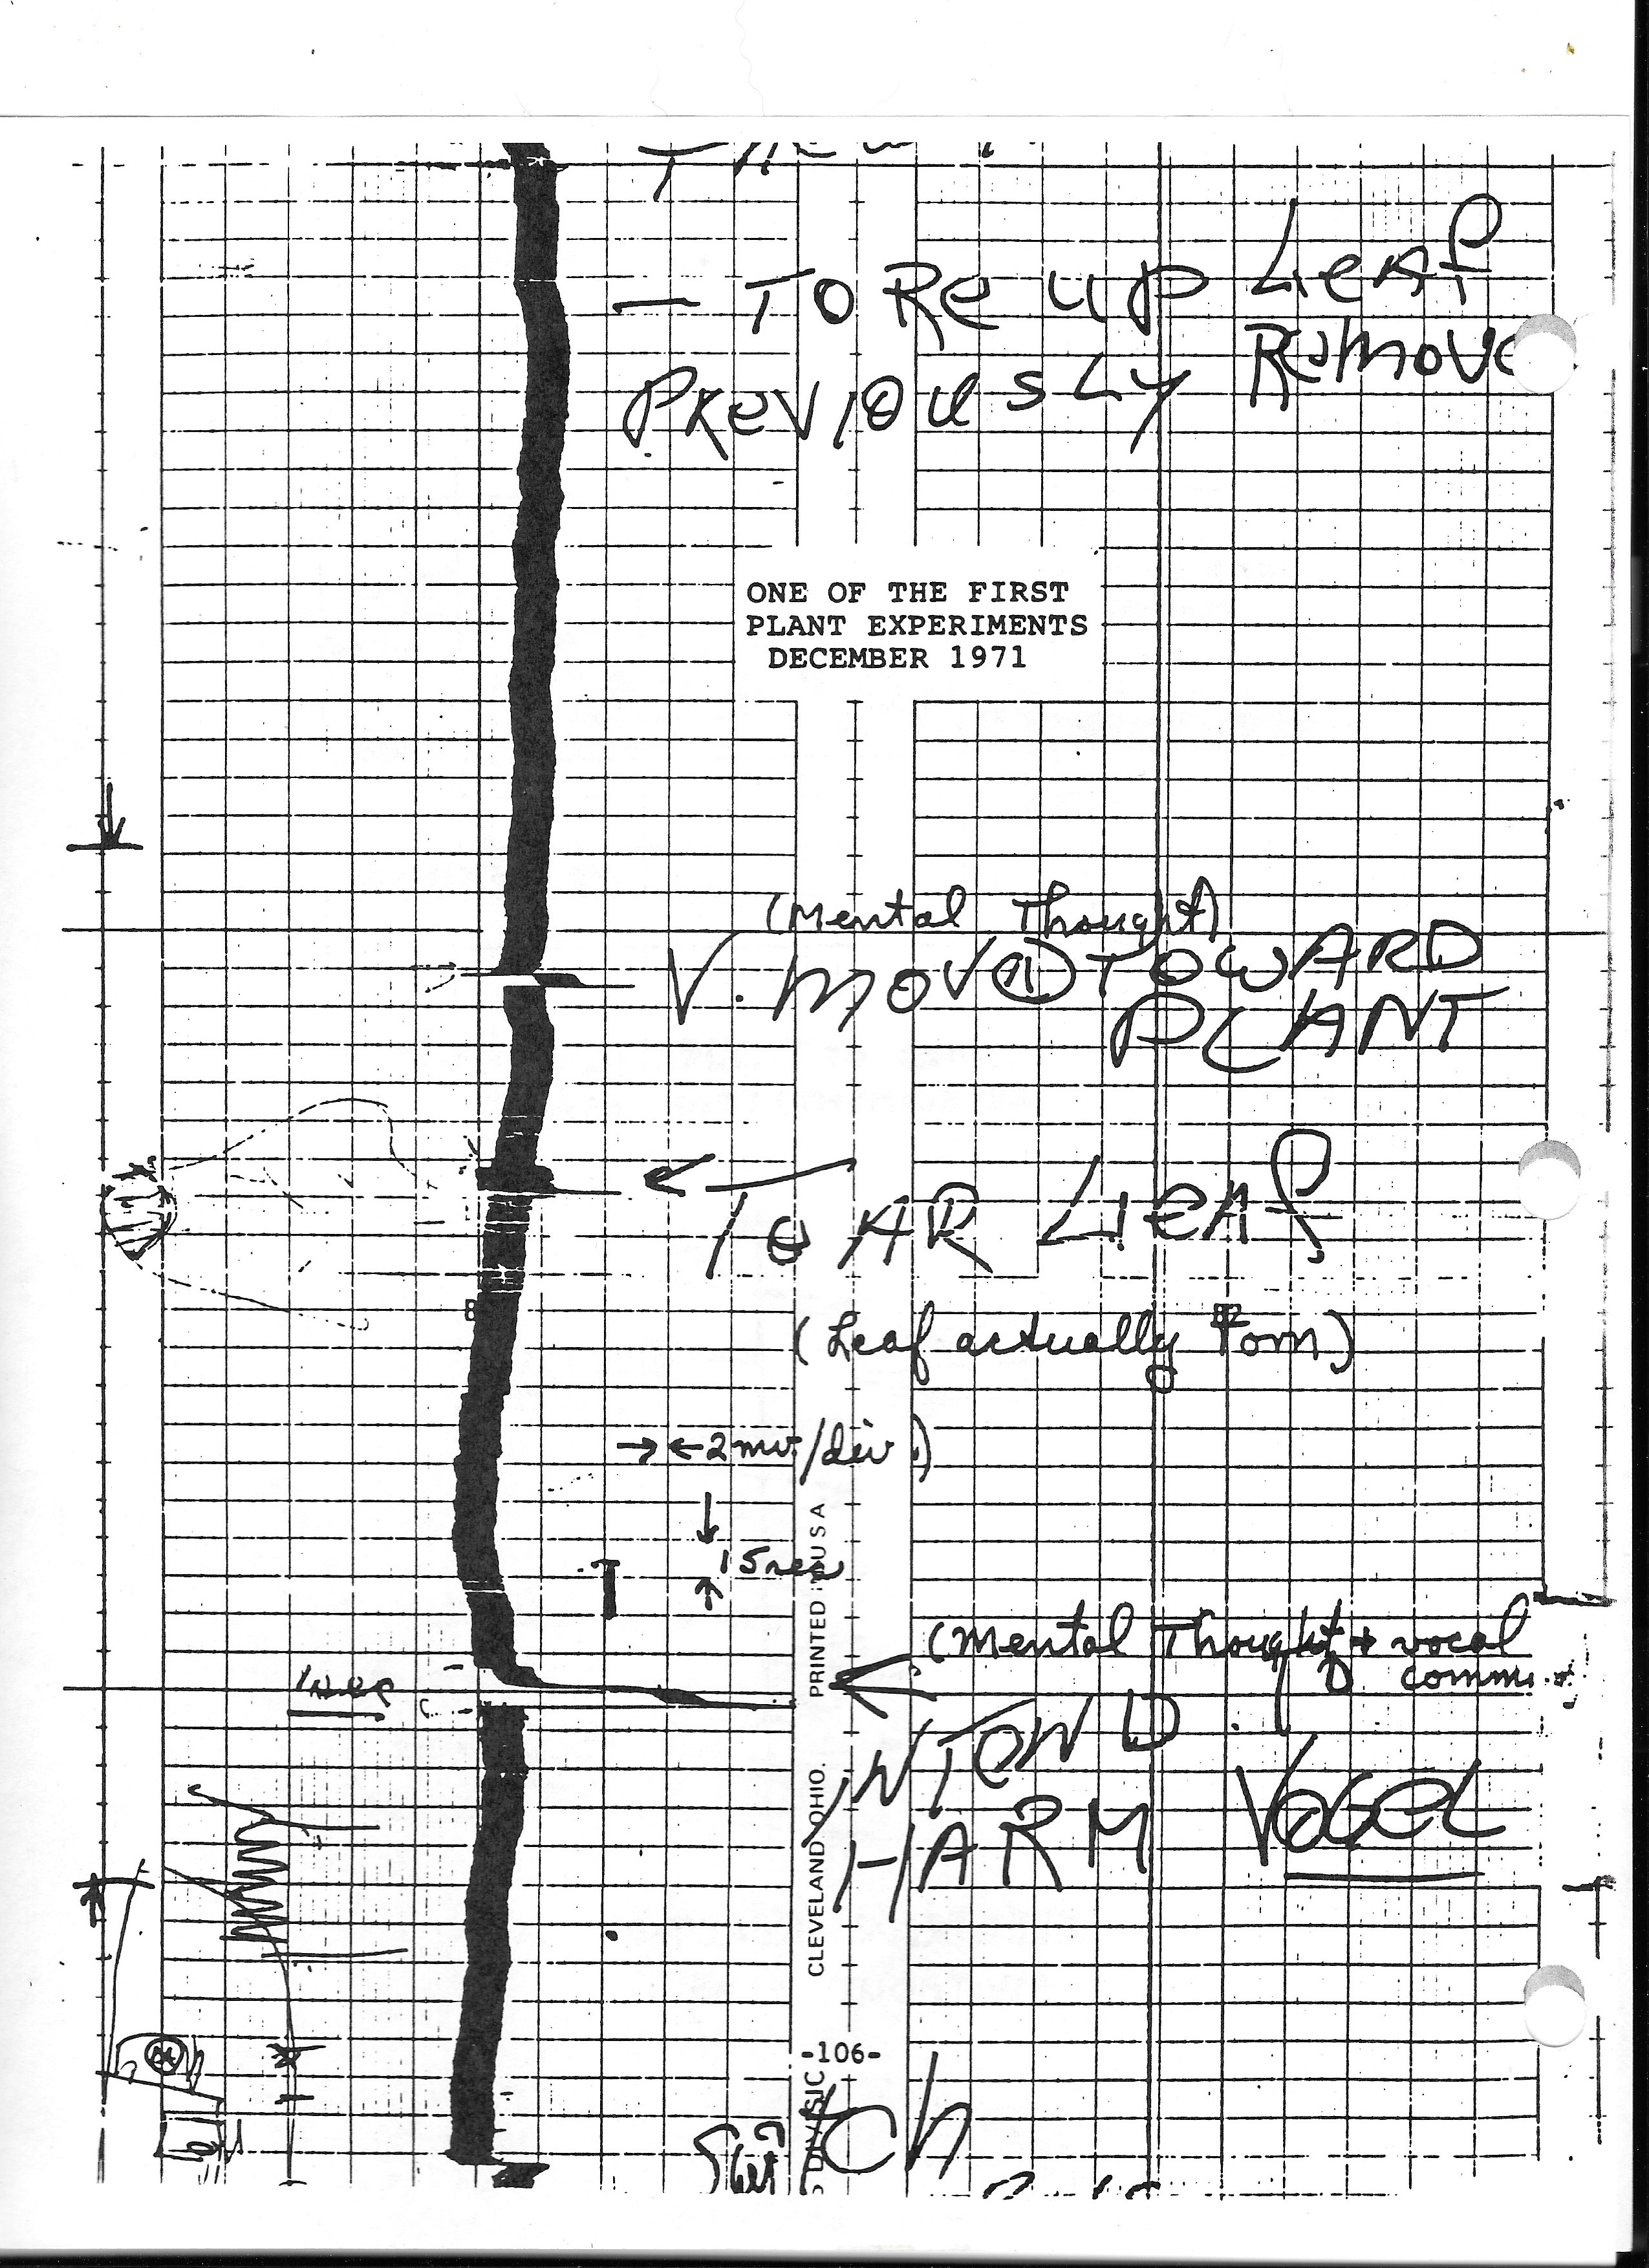 — TORe up LeAf
PReVIOUsLy RemoVe
ONE OF THE FIRST
PLANT EXPERIMENTS
DECEMBER 1971
(Mental Thought)
V. MOV TOWARD
PLANT
TeAR LeAf
(Leaf actually Torn)
→ ← 2 mv./div.)
15 sec
PRINTED U S A
(Mental Thought + vocal
1 sec
INTOND
HARM VOGEL
CLEVELAND, OHIO.
-106-
SwiTCh